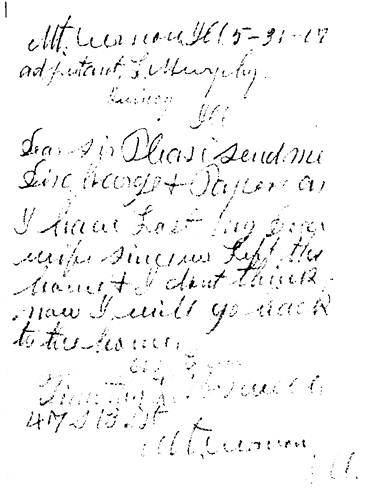 Mt. Vernon Ill 5-31-17
adjutant J. Murphy
Quincy
Ill
Dear sir Please send me
Discharge + Papers as
I have Lost my Dear
wife since we Left the
home + I dont think
now I will go back
to the home
Timothy
Mt. Vernon
Ill